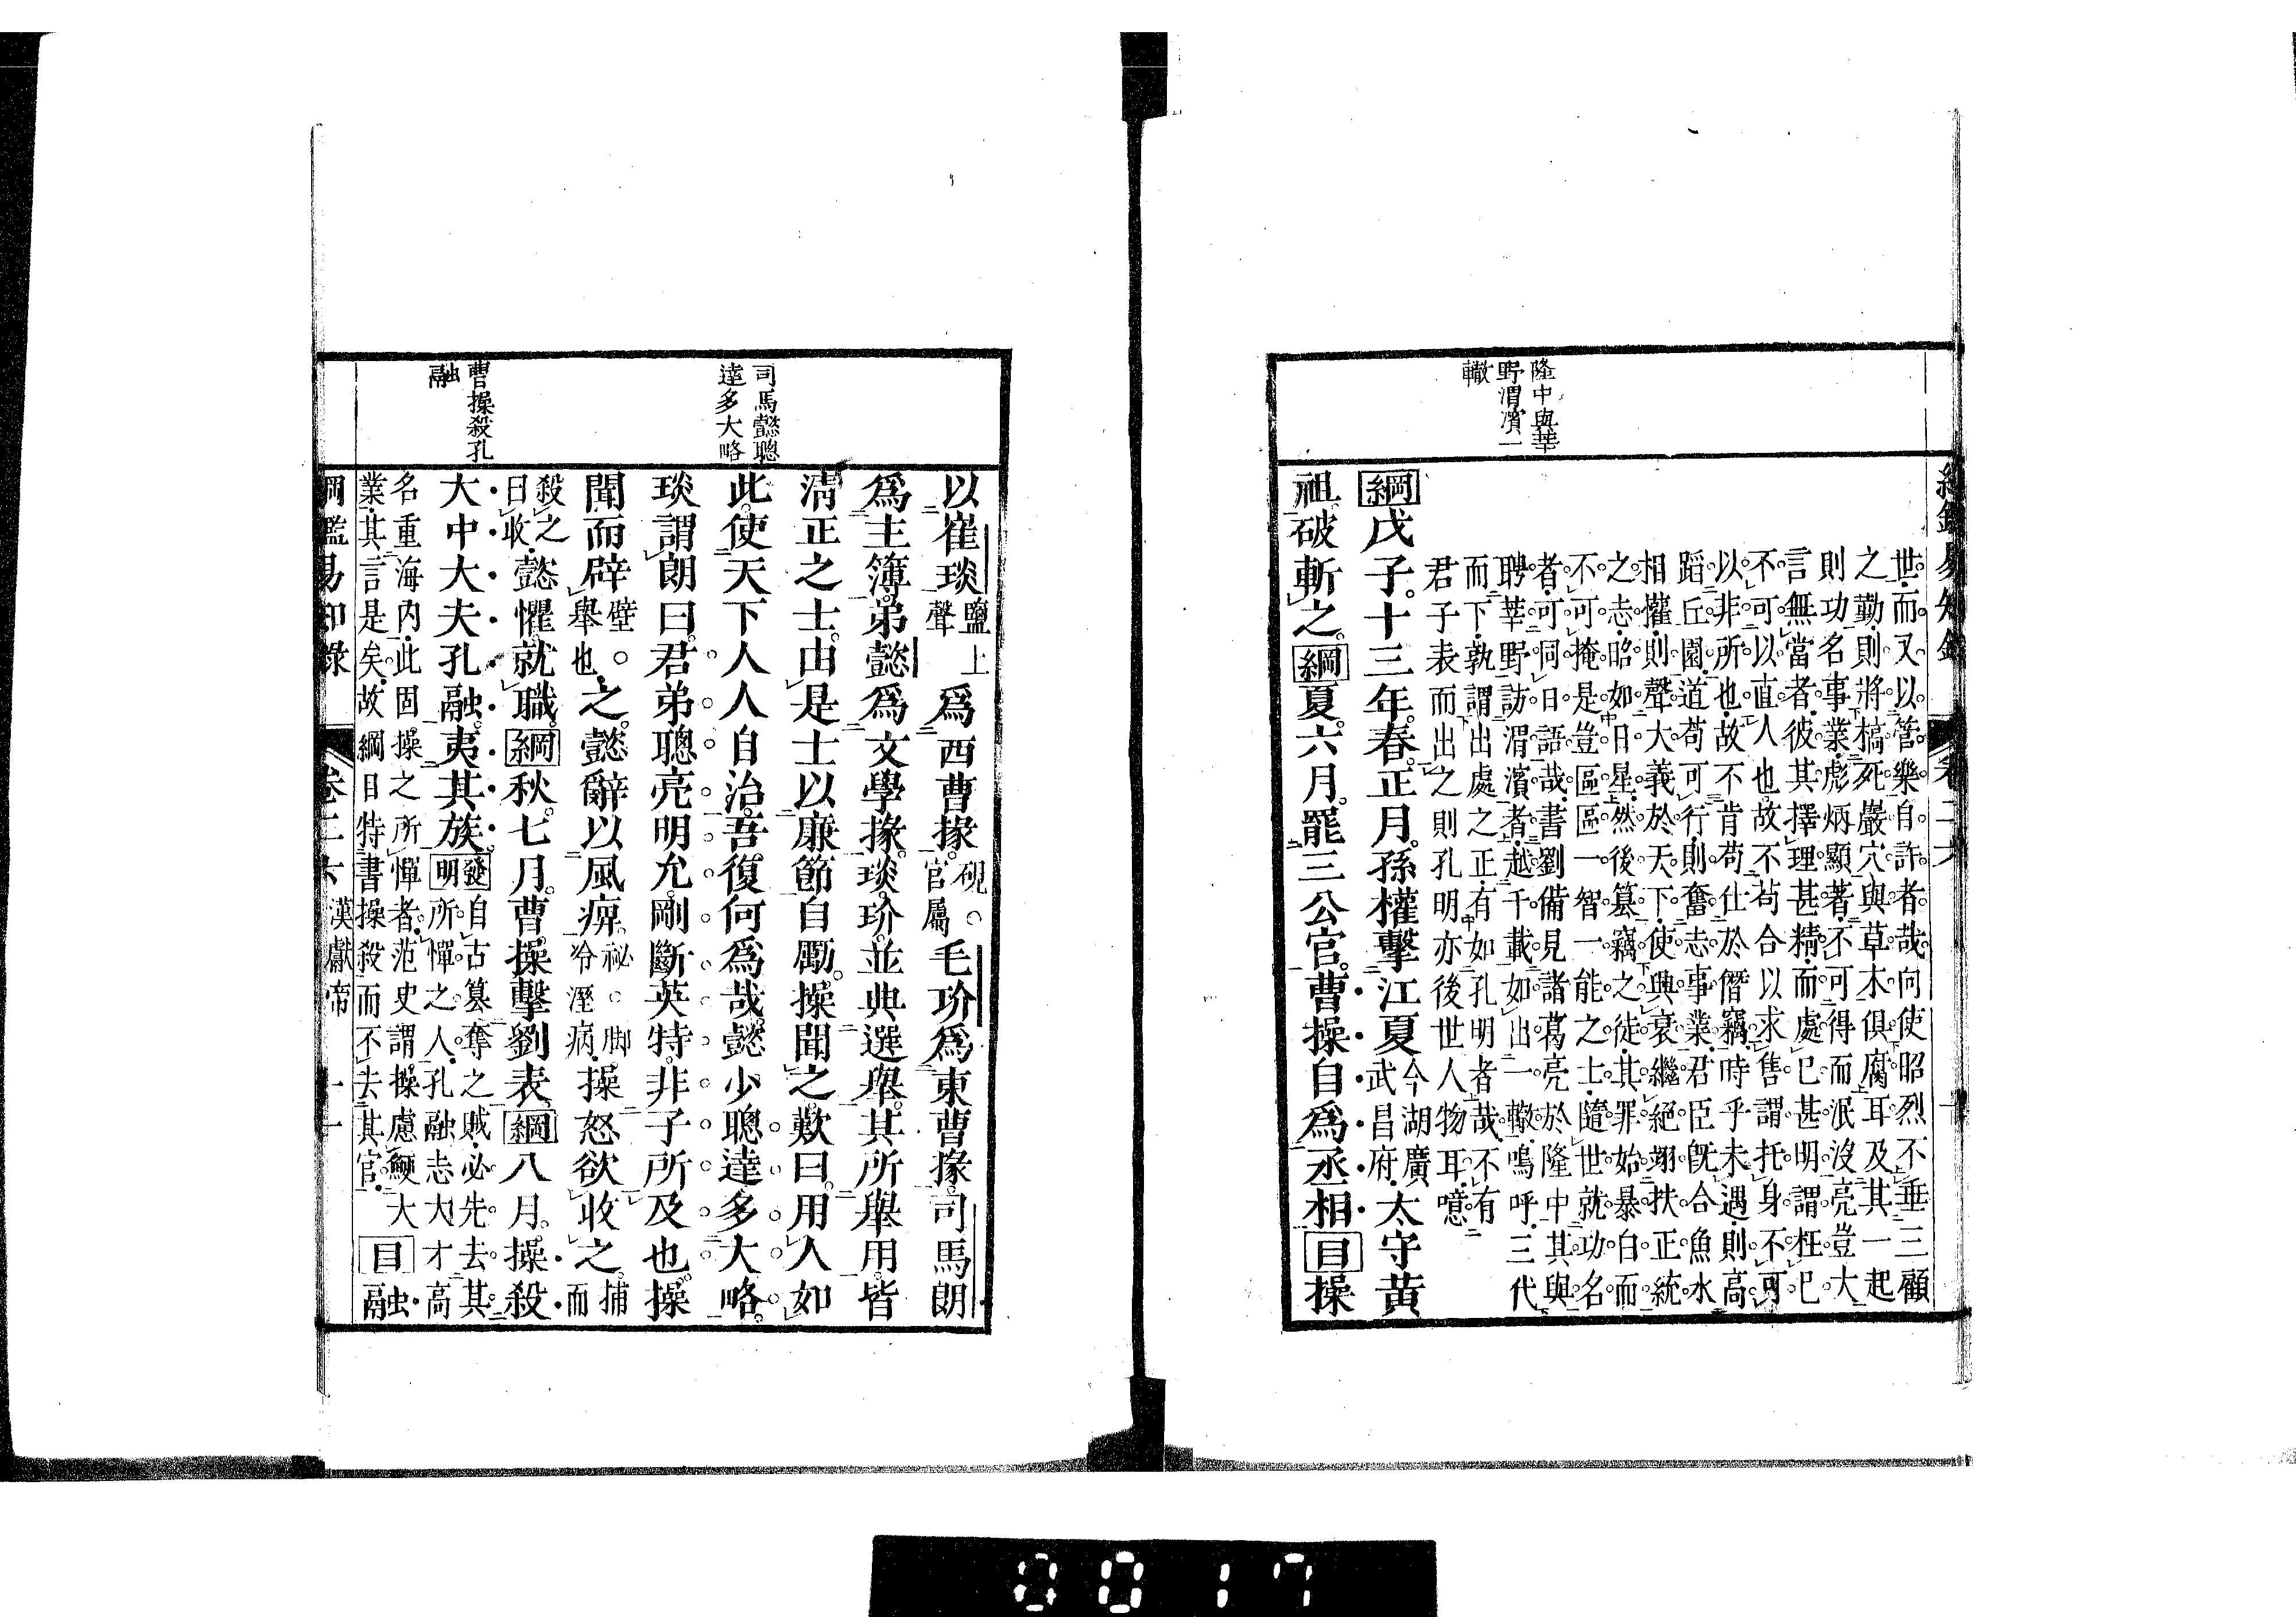 隆中與莘
野渭濱一
轍
世而又以管樂自許者哉向使昭烈不垂三顧
之勤則將槁死巖穴與草木俱腐耳及其一起
則功名事業彪炳顯著不可得而泯沒亮豈大
言無當者彼其擇理甚精而處已甚明謂枉已
不可以直人也故不苟合以求售謂托身不可
以非所也故不肯苟仕於僭竊時乎未遇則高
蹈丘園道苟可行則奮志事業君臣旣合魚水
相懽則聲大義於天下使興衰繼絕翊扶正統
之志昭如日星然後簒竊之徒其罪始暴白而
不可掩是豈區區一智一能之士隨世就功名
者可同日語哉書劉備見諸葛亮於隆中其與
聘莘野訪渭濱者越千載如出一轍嗚呼三代
而下孰謂出處之正有如孔明者哉不有
君子表而出之則孔明亦後世人物耳噫
綱戊子十三年春正月孫權擊江夏今湖廣武昌府太守黄
祖破斬之綱夏六月罷三公官曹操自爲丞相目操
綱鑑易知錄 卷二六 十
司馬懿聰
達多大略
曹操殺孔
融
以崔琰鹽上聲爲西曹掾硯官屬毛玠爲東曹掾司馬朗
爲主簿弟懿爲文學掾琰玠並典選舉其所舉用皆
淸正之士由是士以廉節自勵操聞之歎曰用人如
此使天下人人自治吾復何爲哉懿少聰達多大略
琰謂朗曰君弟聰亮明允剛斷英特非子所及也操
聞而辟壁舉也之懿辭以風痹祕脚冷溼病操怒欲收之捕而
殺之曰收懿懼就職綱秋七月曹操擊劉表綱八月操殺
大中大夫孔融夷其族發明自古簒奪之賊必先去其所憚之人孔融志大才高
名重海内此固操之所憚者范史謂操慮鯁大
業其言是矣故綱目特書操殺而不去其官目融
綱鑑易知錄 卷二六 漢獻帝 十一
0017